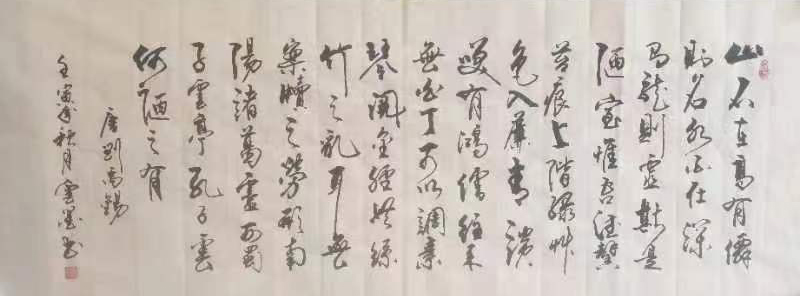 山不在高有僊
則名水不在深
有龍則靈斯是
陋室惟吾德馨
苔痕上階綠艸
色入簾青談
笑有鴻儒往來
無白丁可以調素
琴閱金經無絲
竹之亂耳無
案牘之勞形南
陽諸葛廬西蜀
子雲亭孔子雲
何陋之有
唐劉禹錫
壬寅年秋月雲書